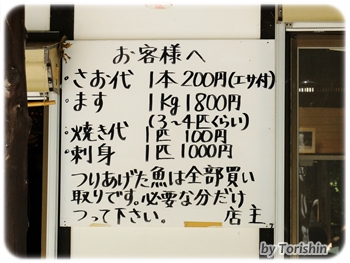 お客様へ
・さお代 1本 200円(エサ付)
・ます 1kg 1800円
(3~4匹くらい)
・焼き代 1匹 100円
・刺身 1匹 1000円
つりあげた魚は全部買い
取りです。必要な分だけ
つって下さい。 店主
by Torishin